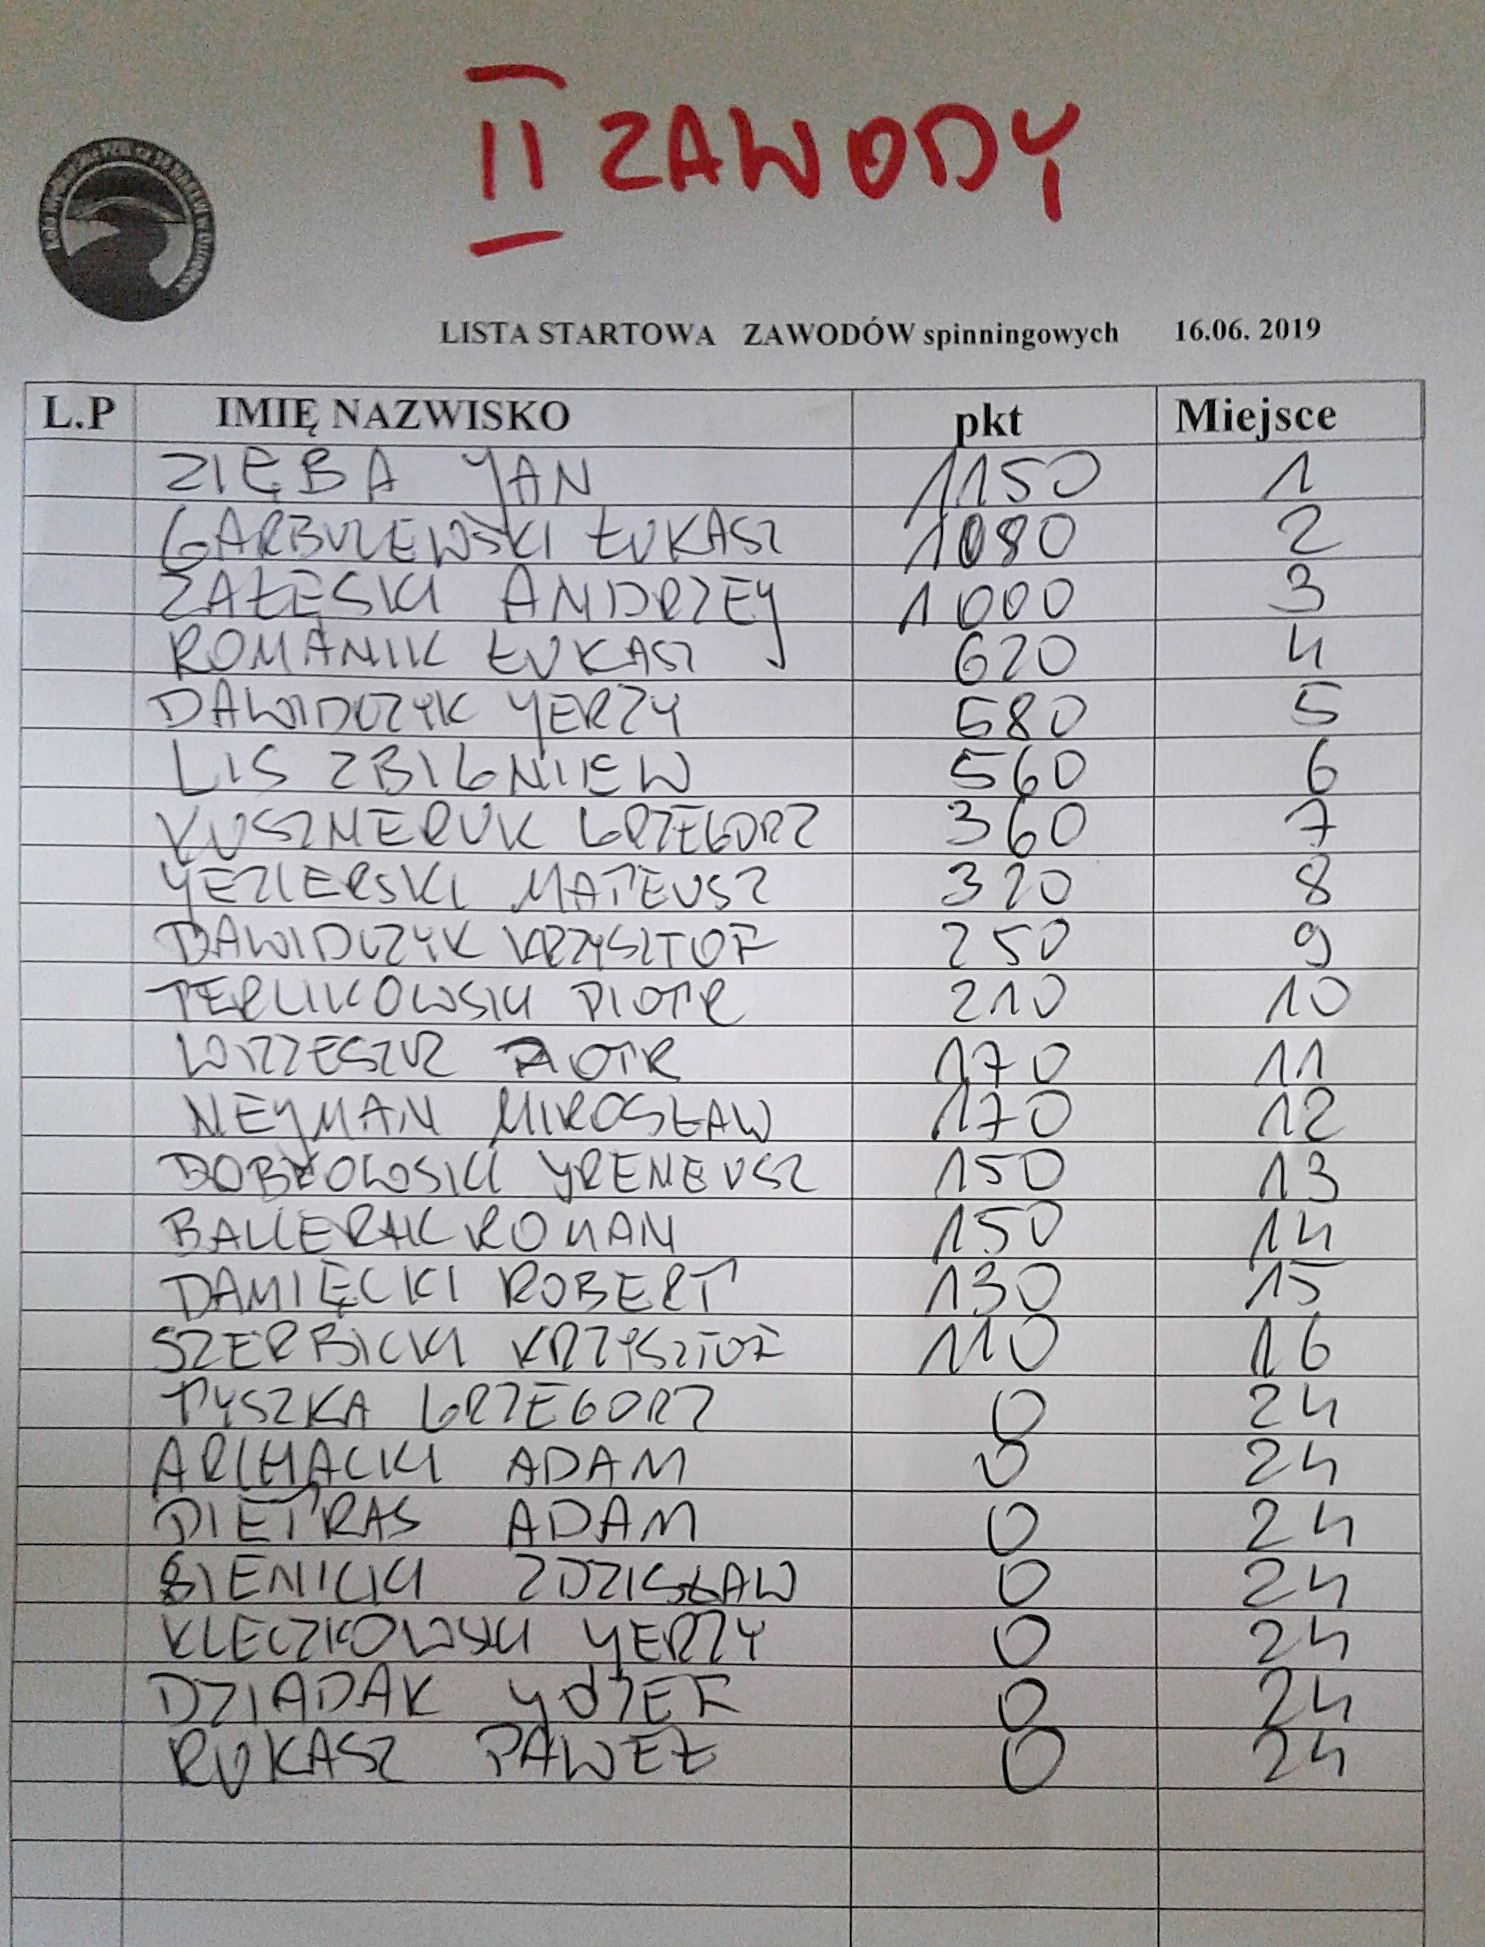 II ZAWODY
LISTA STARTOWA ZAWODÓW spinningowych 16.06. 2019
L.P IMIĘ NAZWISKO pkt Miejsce
ZIĘBA JAN 1150 1
GARBULEWSKI ŁUKASZ 1080 2
ZAŁĘSKI ANDRZEJ 1000 3
ROMANIK ŁUKASZ 620 4
DAWIDCZYK JERZY 580 5
LIS ZBIGNIEW 560 6
KUSZNERUK GRZEGORZ 360 7
JEZIERSKI MATEUSZ 320 8
DAWIDCZYK KRZYSZTOF 250 9
TERLIKOWSKI PIOTR 210 10
PIOTR 170 11
NEJMAN MIROSŁAW 170 12
DOBROWOLSKI IRENEUSZ 150 13
ROMAN 150 14
DAMIĘCKI ROBERT 130 15
SZERBICKI KRZYSZTOF 110 16
TYSZKA GRZEGORZ 0 24
ADAM 0 24
PIETRAS ADAM 0 24
SIENICKI ZDZISŁAW 0 24
KLECZKOWSKI JERZY 0 24
DZIADAK JÓZEF 0 24
RUKASZ PAWEŁ 0 24